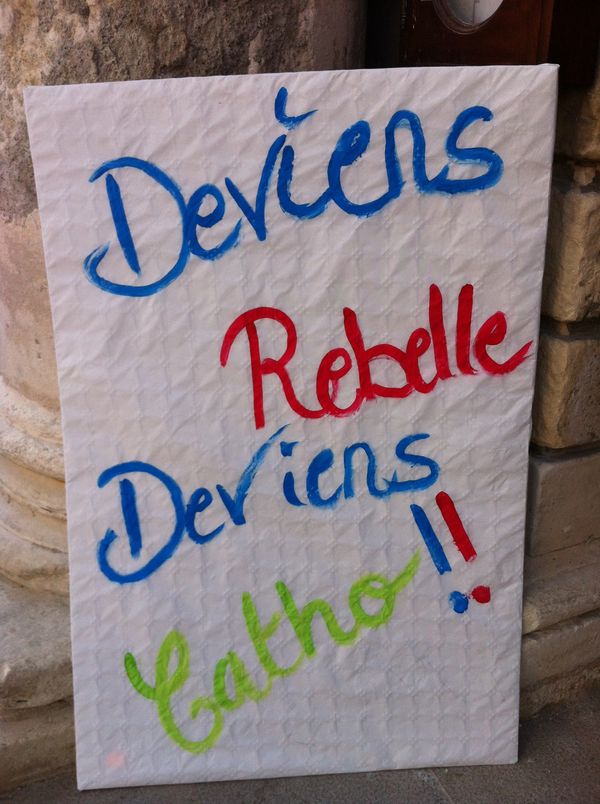 Deviens
Rebelle
Deviens
Catho !!